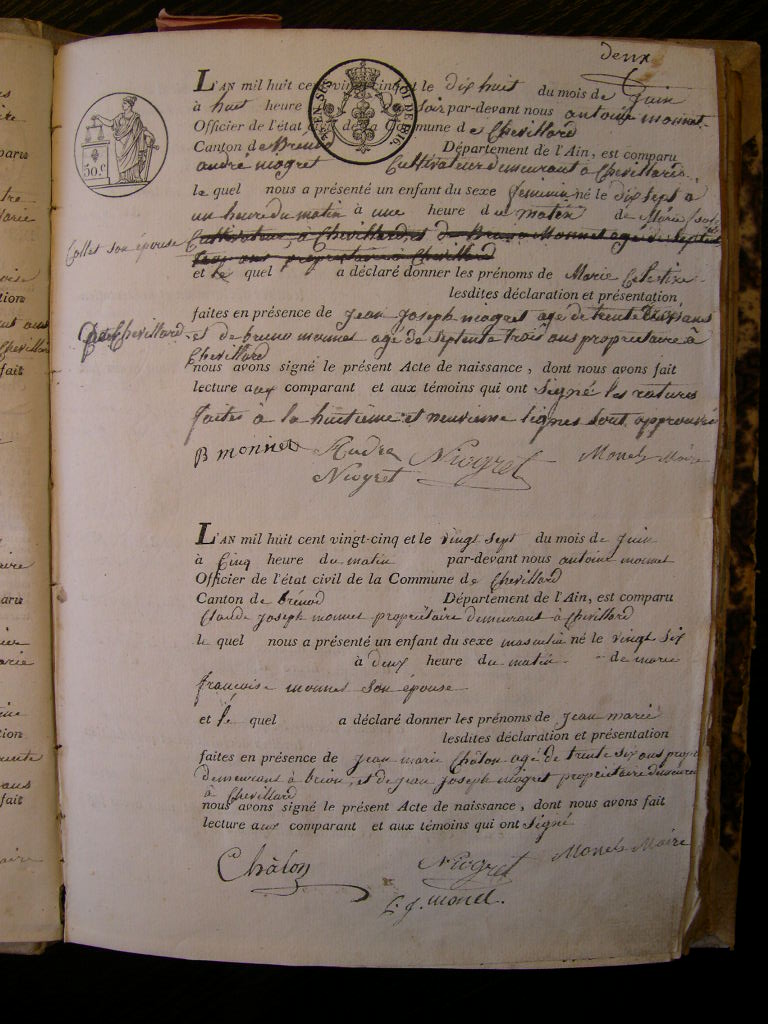 deux
L'AN mil huit cent vingt-cinq et le dix huit du mois de Juin
à huit heure soir par-devant nous antoine monnet
Officier de l'état civil de la Commune de Chevillard
Canton de Brenod Département de l'Ain, est comparu
andré niogret Cultivateur demeurant à Chevillard
le quel nous a présenté un enfant du sexe feminin né le dix sept a
un heure du matin à une heure du matin de Marie
Collet son épouse Cultivateur, à Chevillard, et de Bruno Monnet agé de septente
trois ans propriétaire à Chevillard
et le quel a déclaré donner les prénoms de Marie Celestine
lesdites déclaration et présentation
faites en présence de Jean Joseph niogret agé de trente ans
de Chevillard et de bruno monnet agé de septente trois ans propriétaire à
Chevillard
nous avons signé le présent Acte de naissance, dont nous avons fait
lecture aux comparant et aux témoins qui ont signé les ratures
faites à la huitieme et neuvieme lignes sont approuvée
B monnet Andre Niogret Monet Maire
Niogret
50 C
L'AN mil huit cent vingt-cinq et le vingt sept du mois de Juin
à Cinq heure du matin par-devant nous antoine monnet
Officier de l'état civil de la Commune de Chevillard
Canton de brénod Département de l'Ain, est comparu
Claude Joseph monnet propriétaire demeurant à Chevillard
le quel nous a présenté un enfant du sexe masculin né le vingt six
à deux heure du matin de marie
françoise monnet son épouse
et le quel a déclaré donner les prénoms de Jean marie
lesdites déclaration et présentation
faites en présence de Jean marie Châlon agé de trente six ans propre
demeurant à brion, et de Jean Joseph niogret propriétaire demeurant
à Chevillard
nous avons signé le présent Acte de naissance, dont nous avons fait
lecture aux comparant et aux témoins qui ont signé
Châlon Niogret Monet Maire
C. J. monet.